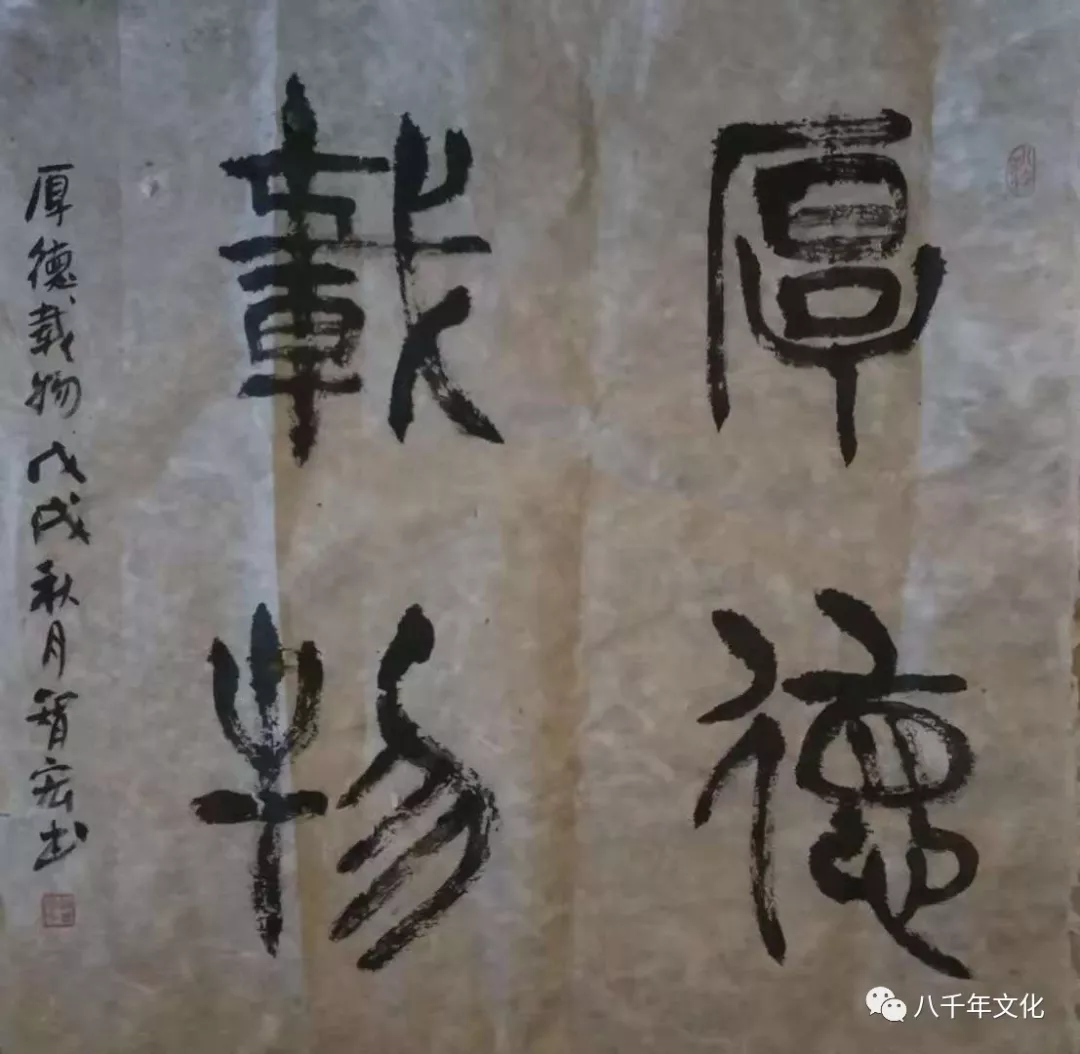 厚德
载物
厚德载物戊戌秋月智宏书
八千年文化